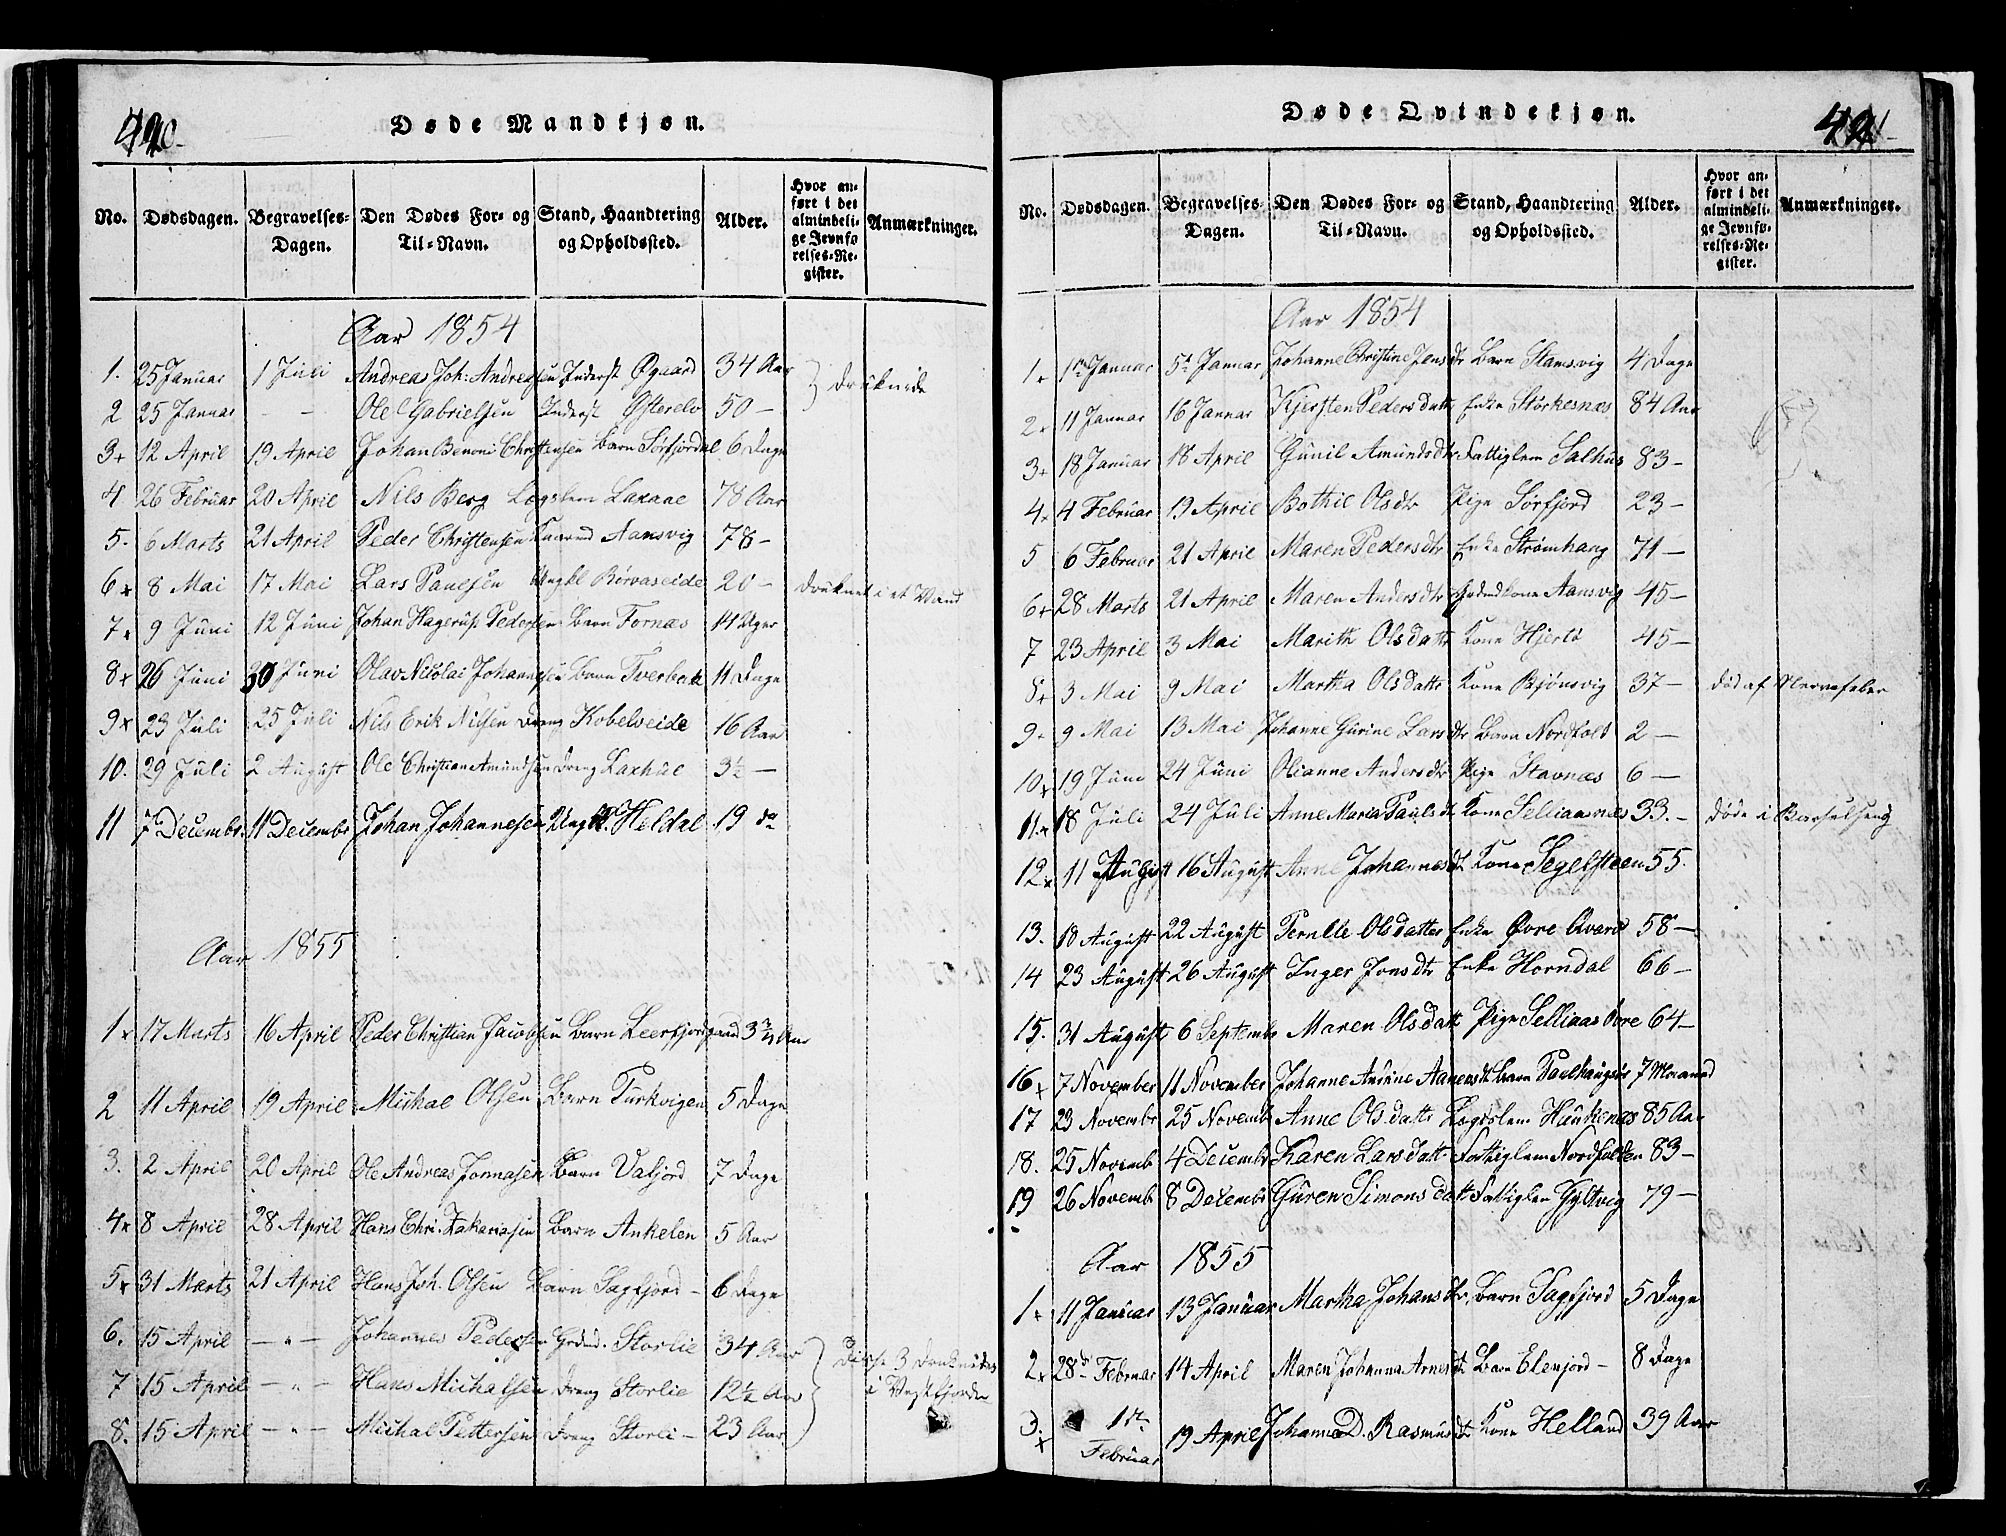 420
Døde Mandkjøn.
No. Dødsdagen. Begravelses-Dagen. Den Dødes For- og Til-Navn. Stand, Haandtering og Opholdssted. Alder. Hvor anført i det almindelige Jevnførelses-Register. Anmærkninger.
Aar 1854
1. 25 Januar 1 Juli Andreas Joh: Andreasen Inderst Øgaard 34 Aar druknede
2 25 Januar - - Ole Gabrielsen Inderst Østerelv 50 -
3+ 12 April 19 April Johan Benoni Christensen Barn Sørfjordal 6 Dage
4 26 Februar 20 April Nils Berg Lægslem Laxaae 78 Aar
5. 6 Marts 21 April Peder Christensen Aansvig 78 -
6+ 8 Mai 17 Mai Lars Paulsen Ungkl Børvaseide 20 - druknet i et Vand
7+ 9 Juni 12 Juni Johan Hagerup Pedersen Barn Fornæs 14 Uger
8+ 26 Juni 30 Juni Olav Nicolai Johannesen Barn Tverbak 11 Dage
9+ 23 Juli 25 Juli Nils Erik Nilsen Dreng Kobelveide 16 Aar
10. 29 Juli 2 August Ole Christian Amundsen Dreng Laxhue 3½ -
11 7 Decembr 11 Decembr Johan Johannesen Ungk. Heldal 19 do
Aar 1855
1+ 17 Marts 16 April Peder Christian Jacobsen Barn Leerfjordgaard 3 Aar
2 11 April 19 April Michal Olsen Barn Turkvigen 5 Dage
3. 2 April 20 April Ole Andreas Jonnasen Barn Valjord 7 Dage
4+ 8 April 28 April Hans Chr. Zakariasen Barn Ankelen 5 Aar
5+ 31 Marts 21 April Hans Joh. Olsen Barn Sagfjord - 6 Dage
6. 15 April - " - Johannes Pedersen Grdmd. Storlie 34 Aar Disse 3 druknedes
7 15 April - " - Hans Michalsen Dreng Storlie 12½ Aar i Vestfjorden
8. 15 April - " - Michal Pettersen Dreng Storli - 23 Aar
Døde Qvindekjøn.
421
No. Dødsdagen. Begravelses-Dagen. Den Dødes For- og Til-Navn. Stand, Haandtering og Opholdssted. Alder. Hvor anført i det almindelige Jevnførelses-Register. Anmærkninger.
Aar 1854
1+ 1ste Januar 5te Januar Johanne Christine Jensdtr Barn Stamsvig 4 Dage
2+ 11 Januar 16 Januar Kjersten Pedersdatt Enke Størkesnæs 84 Aar
3+ 18 Januar 18 April Gunil Amundsdtr Fattiglem Salhus 83 -
4+ 4 Februar 19 April Bothil Olsdtr Pige Sørfjord 23 -
5 6 Februar 21 April Maren Pedersdtr Enke Strømhaug 71 -
6+ 28 Marts 21 April Maren Andersdtr Grdmdkone Aansvig 45 -
7 23 April 3 Mai Marith Olsdatt Kone Hjertø 45 -
8+ 3 Mai 9 Mai Martha Olsdattr Kone Bjønsvig 37 - død af Nervefeber
9+ 9 Mai 13 Mai Johanne Gurine Larsdtr Barn Nordfold 2 -
10+ 19 Juni 24 Juni Olianne Andersdtr Pige Stavnæs 6 -
11+ 18 Juli 24 Juli Anne Maria Paulsdtr Kone Selliaasnæs 33. - døde i Barselseng
12+ 11 August 16 August Anne Johannesdtr Kone Segelsteen 55.
13. 18 August 22 August Pernille Olsdatter Enke Øvre Qvarv 58 -
14 23 August 26 August Inger Jonsdtr Enke Horndal 66 -
15. 31 August 6 Septembr Maren Olsdatt Pige Selliaas Øvre 64 -
16+ 7 November 11 November Johanne Andrine Barn 7 Maaned
17 23 Novembr 25 Novembr Anne Olsdattr Lægdslem Haukenæs 85 Aar
18. 25 Novemb 4 Decembr Karen Larsdatt Fattiglem Nordfolden 83 -
19 26 Novemb 8 Decembr Guren Simonsdatt Fattiglem Gyltvig 79 -
Aar 1855
1+ 11 Januar 13 Januar Martha Johansdtr. Barn Sagfjord 5 Dage
2+ 28de Februar 14 April Maren Johanna Arnesdtr Barn Elenjord - 8 Dage
3.+ 1ste Februar 19 April Johanna D. Rasmusdtr Kone Helland 39 Aar